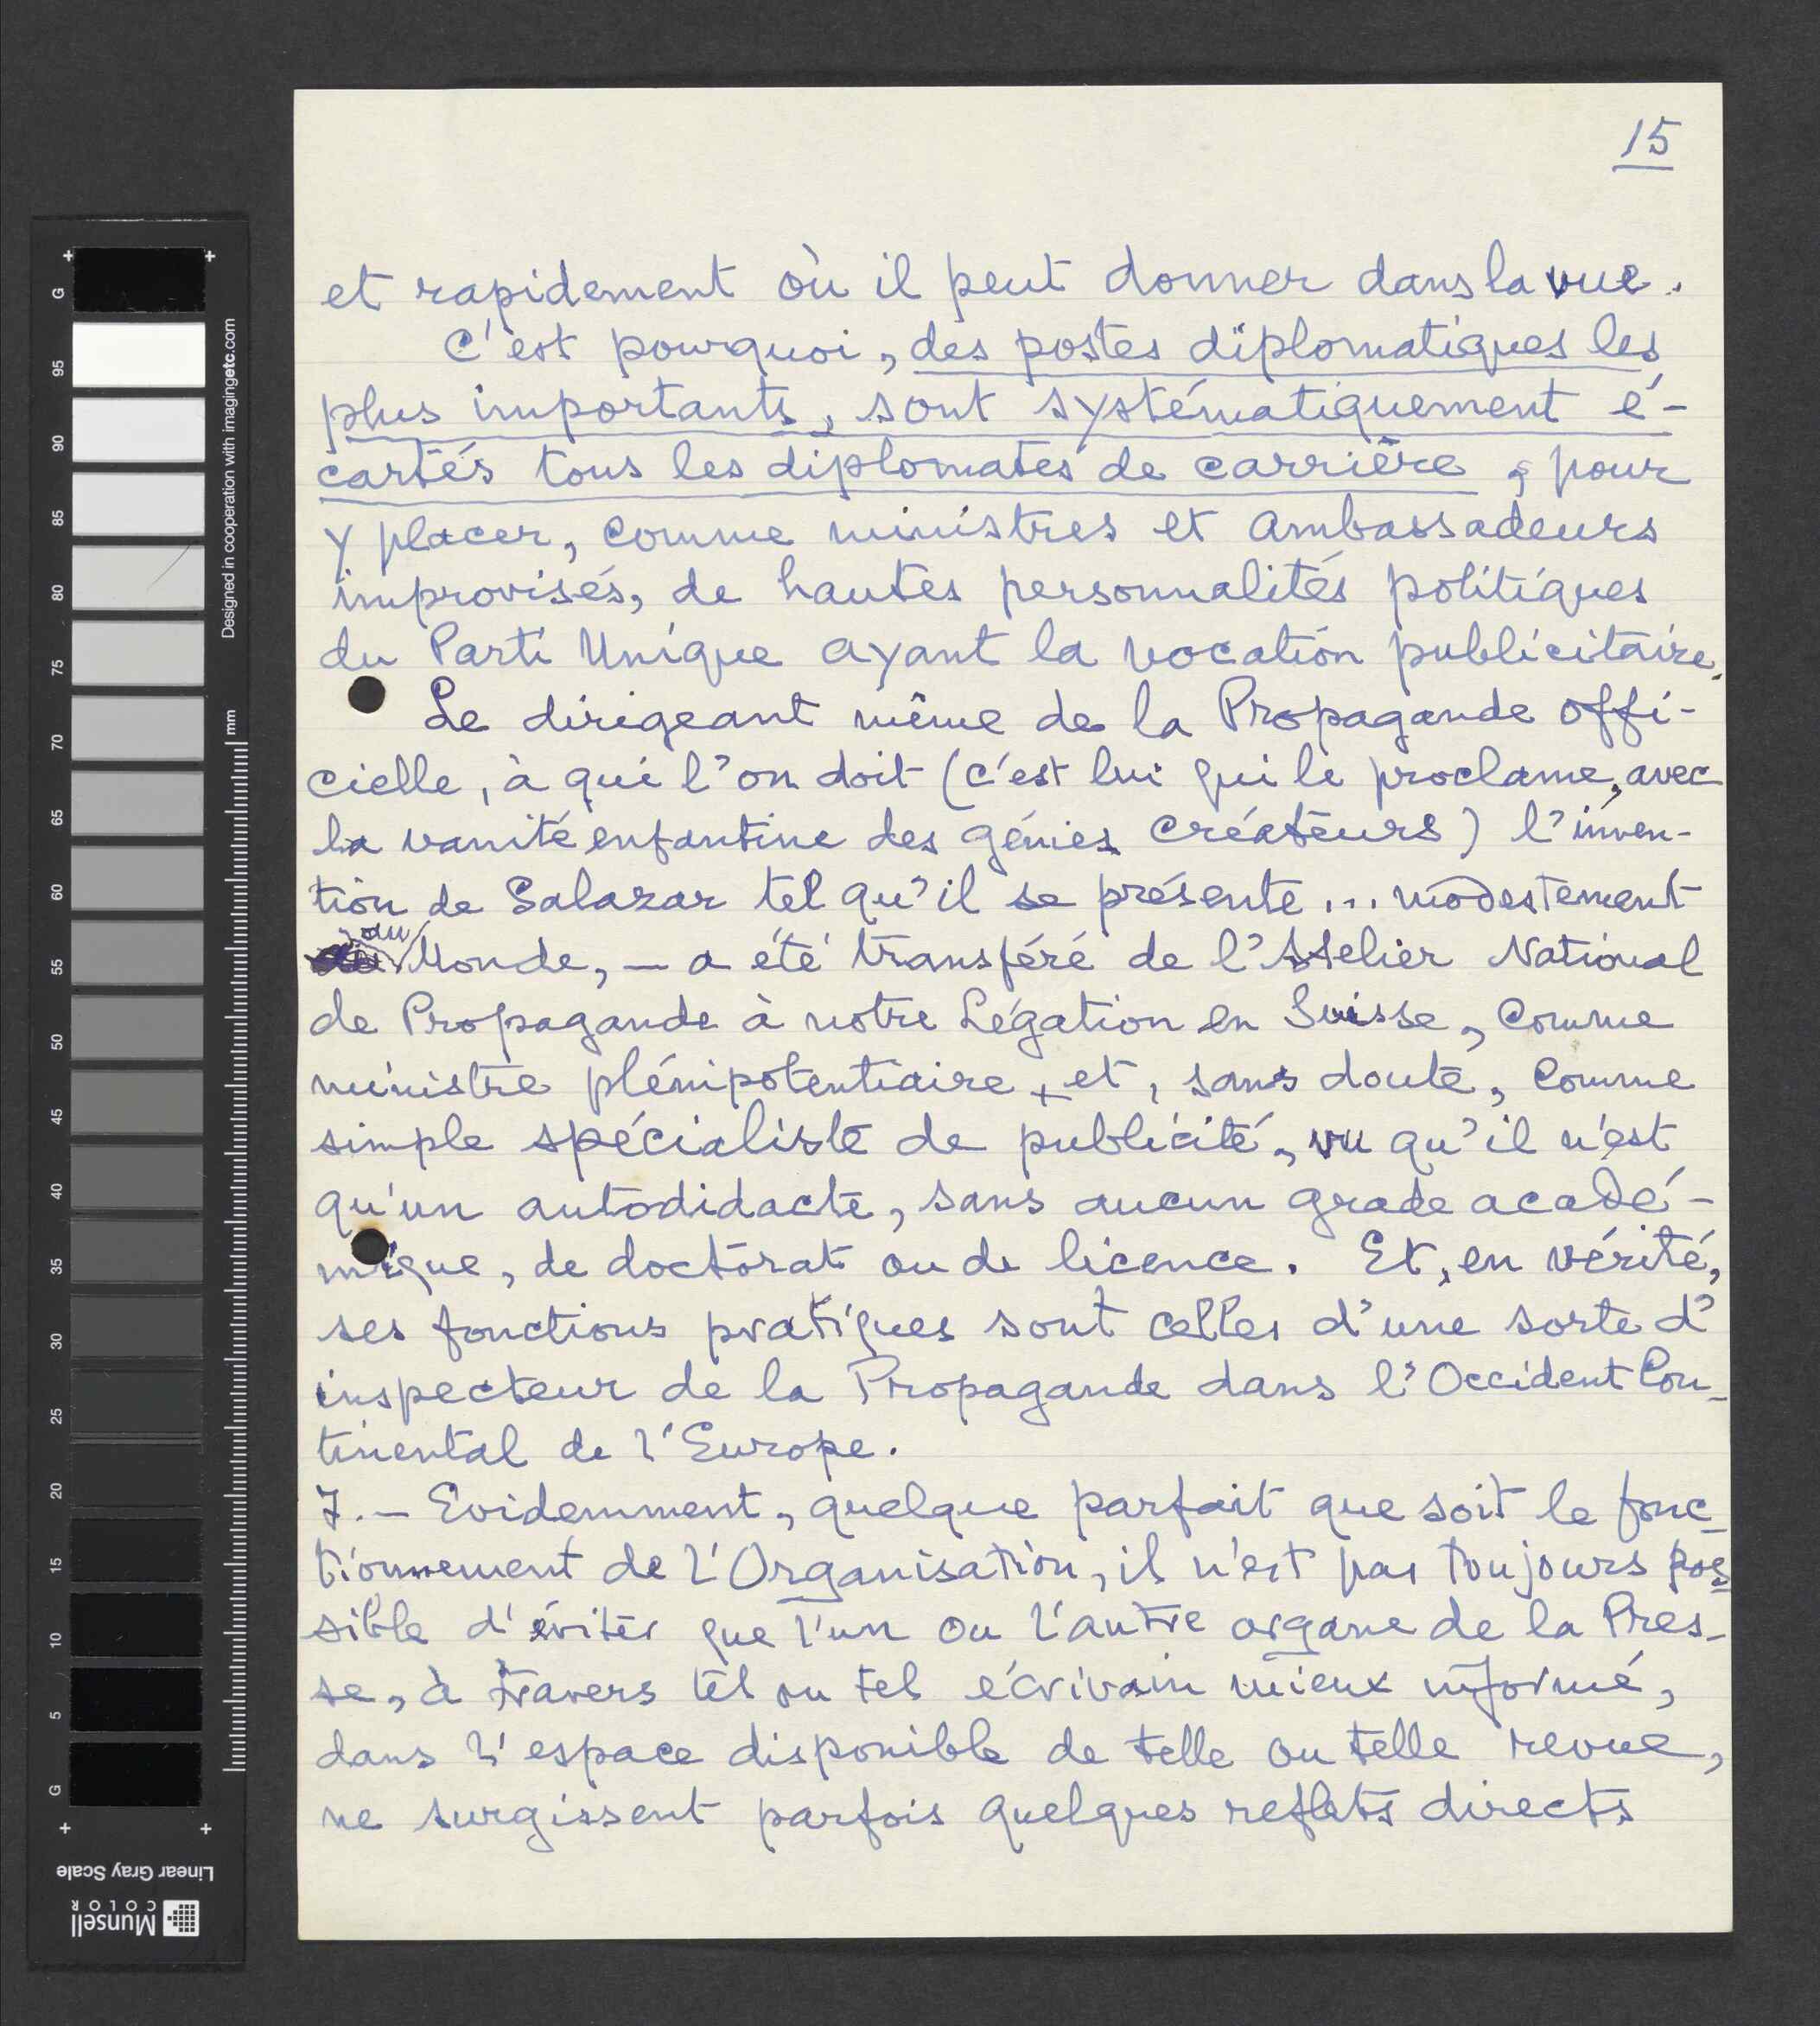 15
et rapidement où il peut donner dans la vue.
C'est pourquoi, des postes diplomatiques les
plus importants, sont systématiquement é-
cartés tous les diplomates de carrière, pour
y placer, comme ministres et ambassadeurs
improvisés, de hautes personnalités politiques
du Parti Unique ayant la vocation publicitaire.
Le dirigeant même de la Propagande offi-
cielle, à qui l'on doit (c'est lui qui le proclame, avec
la vanité enfantine des génies créateurs) l'inven-
tion de Salazar tel qu'il se présente... modestement
au Monde, — a été transféré de l'Atelier National
de Propagande à notre Légation en Suisse, comme
ministre plénipotentiaire, et, sans doute, comme
simple spécialiste de publicité, vu qu'il n'est
qu'un autodidacte, sans aucun grade acadé-
mique, de doctorat ou de licence. Et, en vérité,
ses fonctions pratiques sont celles d'une sorte d'
inspecteur de la Propagande dans l'Occident Con-
tinental de l'Europe.
7.— Evidemment, quelque parfait que soit le fonc-
tionnement de l'Organisation, il n'est pas toujours pos-
sible d'éviter que l'un ou l'autre organe de la Pres-
se, à travers tel ou tel écrivain mieux informé,
dans l'espace disponible de telle ou telle revue,
ne surgissent parfois quelques reflets directs
Designed in cooperation with imagingetc.com
mm
G
95
90
85
80
75
70
65
60
55
50
45
40
35
30
25
20
15
10
5
G
Linear Gray Scale
Munsell
COLOR